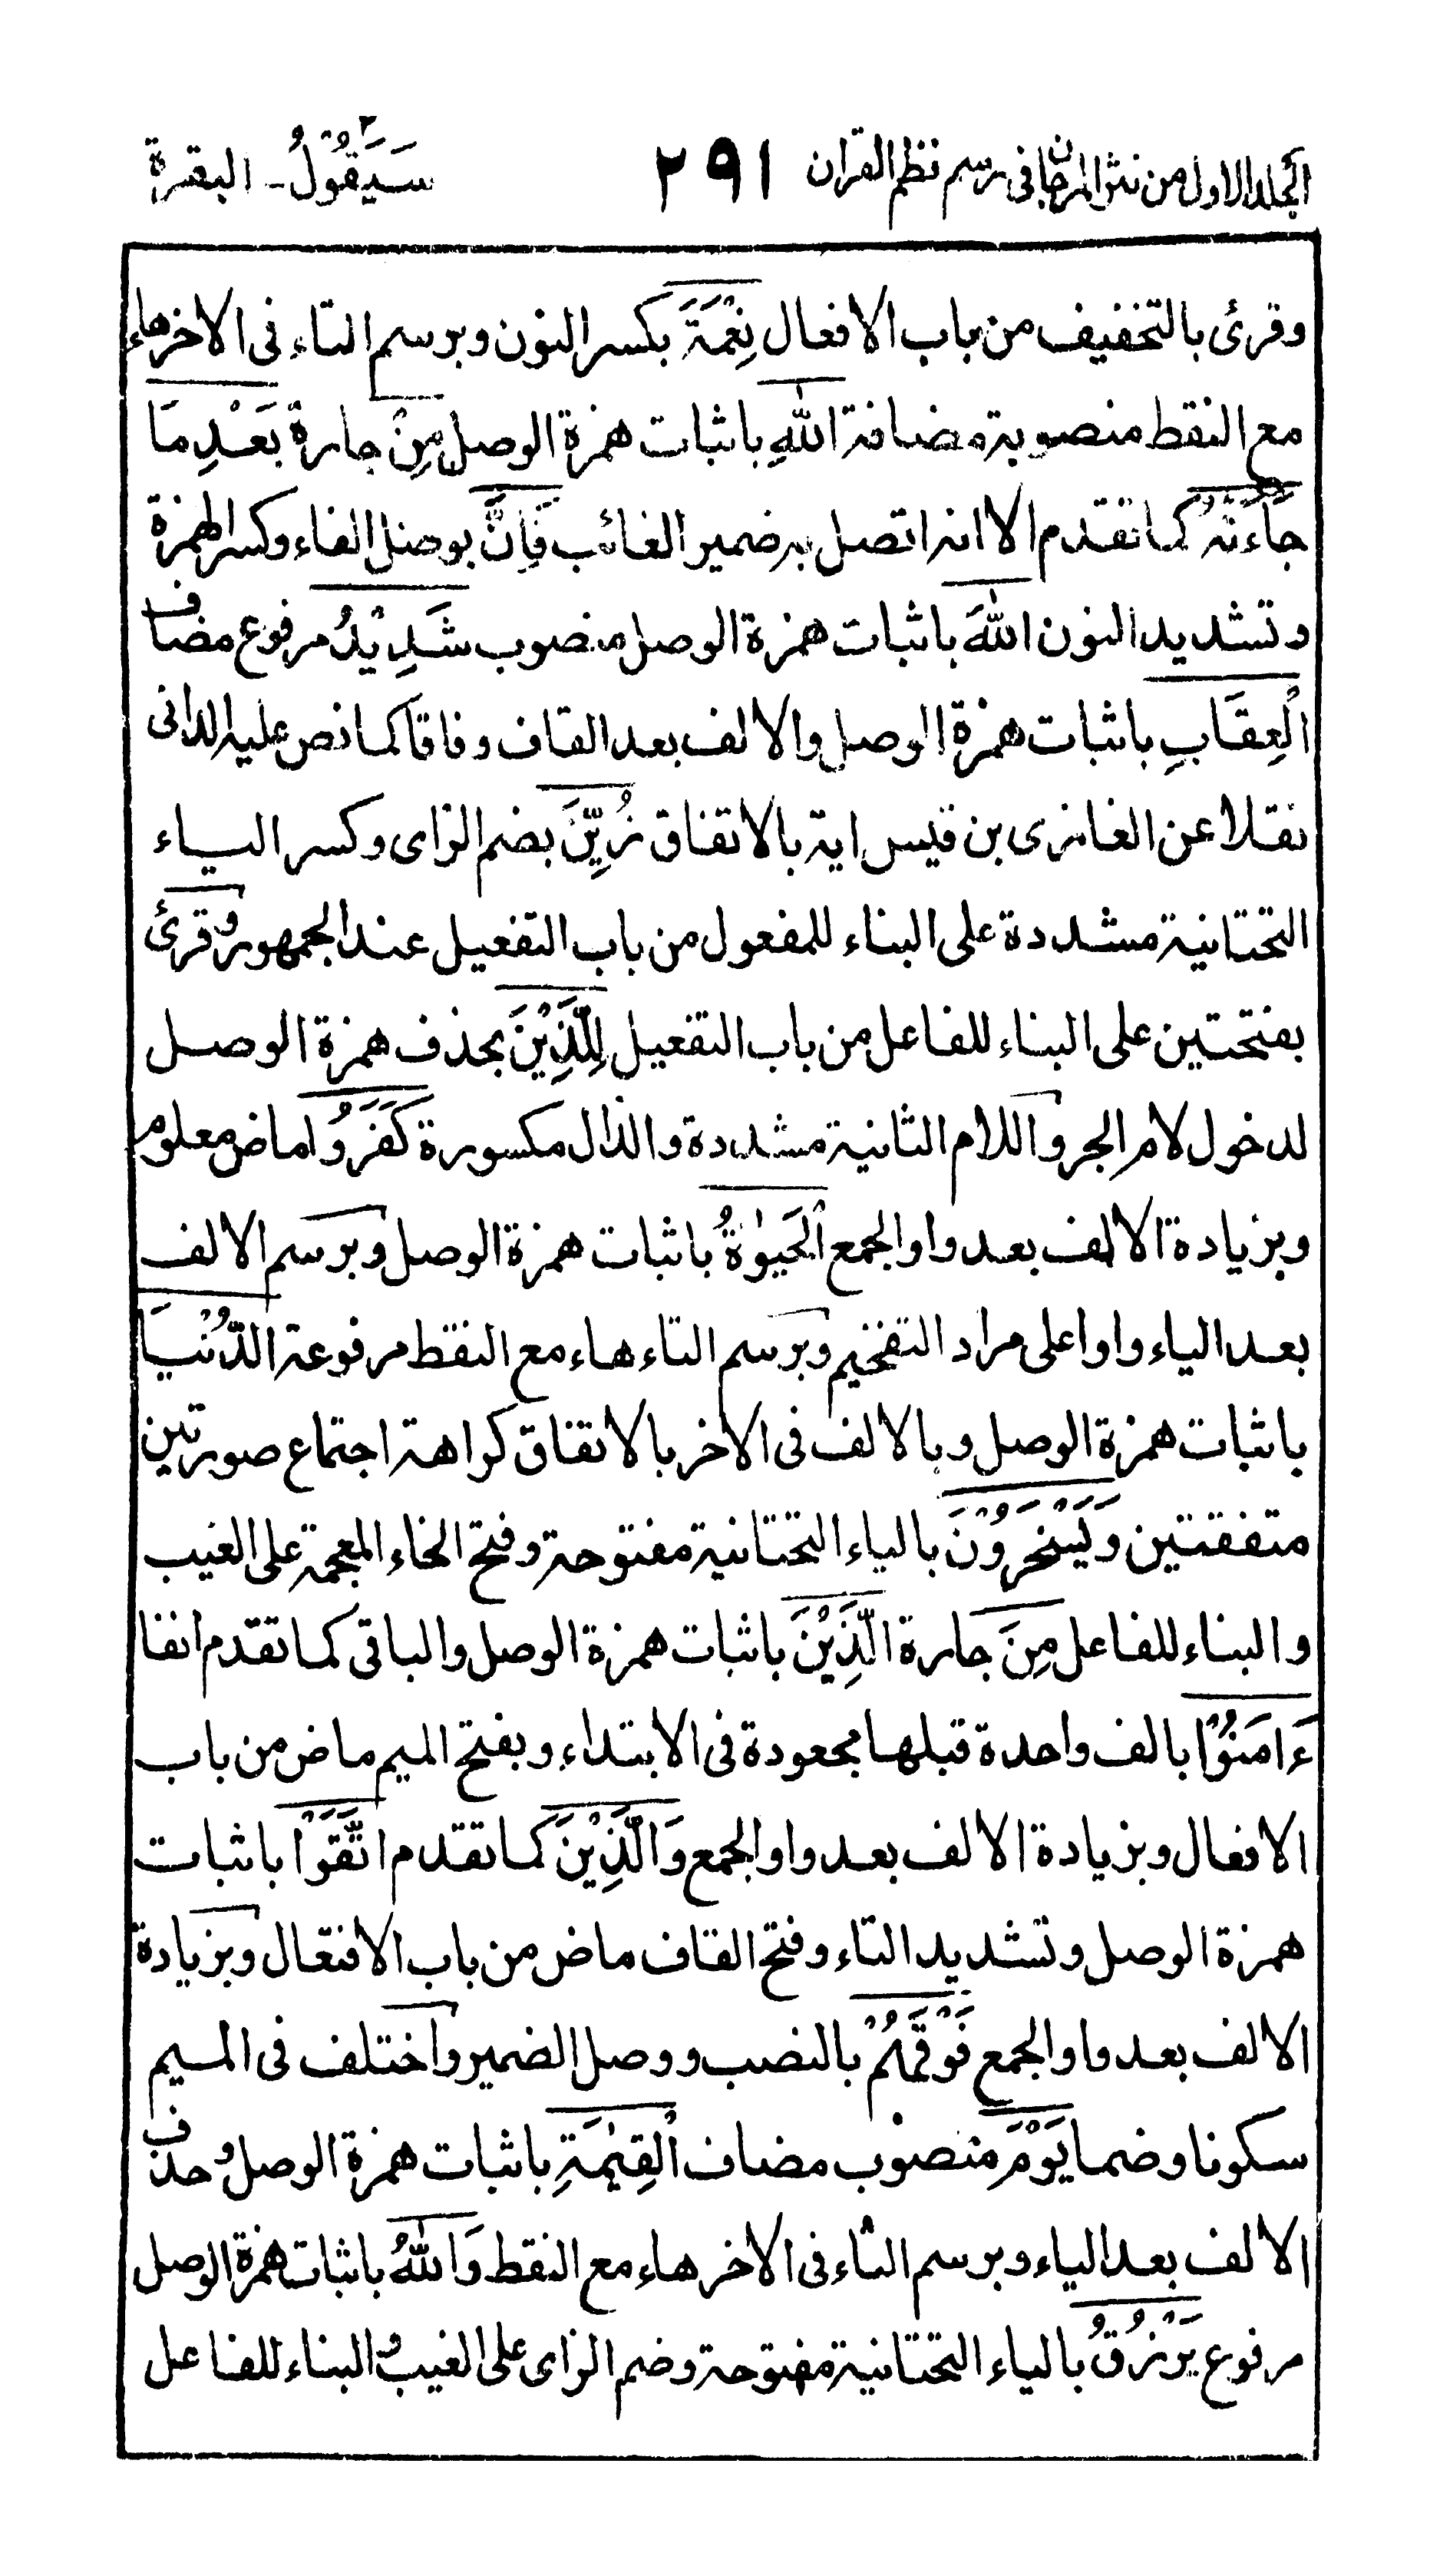 المجلد الاول من نثر المرجان فى رسم نظم القران ٢٩١ سَيَقُوْلُ ٢ ـ البقرة
وقرئ بالتخفيف من باب الافعال نِعْمَةَ بكسر النون وبرسم التاء فى الاخر هاء
مع النقط منصوبة مضافة اللّٰهِ باثبات همزة الوصل مِنْ جارة بَعْدِ مَا
جَآءَتْهُ كما تقدم الا انه اتصل به ضمير الغائب فَاِنَّ بوصل الفاء وكسر الهمزة
وتشديد النون اللّٰهَ باثبات همزة الوصل منصوب شَدِيْدُ مرفوع مضاف
الْعِقَابِ باثبات همزة الوصل والالف بعد القاف وفاقا كما نص عليه الدانى
نقلا عن الغازى بن قيس اية بالاتفاق زُيِّنَ بضم الزاى وكسر الياء
التحتانية مشددة على البناء للمفعول من باب التفعيل عند الجمهور وقرئ
بفتحتين على البناء للفاعل من باب التفعيل لِلَّذِيْنَ بحذف همزة الوصل
لدخول لام الجر واللام الثانية مشددة والذال مكسورة كَفَرُوْا ماض معلوم
وبزيادة الالف بعد واو الجمع الْحَيٰوةُ باثبات همزة الوصل وبرسم الالف
بعد الياء واوا على مراد التفخيم وبرسم التاء هاء مع النقط مرفوعة الدُّنْيَا
باثبات همزة الوصل وبالالف فى الاخر بالاتفاق كراهة اجتماع صورتين
متفقتين وَيَسْخَرُوْنَ بالياء التحتانية مفتوحة وفتح الخاء المعجمة على الغيب
والبناء للفاعل مِنَ جارة الَّذِيْنَ باثبات همزة الوصل والباقى كما تقدم انفا
ءَامَنُوْا بالف واحدة قبلها مجعودة فى الابتداء وبفتح الميم ماض من باب
الافعال وبزيادة الالف بعد واو الجمع وَالَّذِيْنَ كما تقدم اتَّقَوْا باثبات
همزة الوصل وتشديد التاء وفتح القاف ماض من باب الافتعال وبزيادة
الالف بعد واو الجمع فَوْقَهُمْ بالنصب ووصل الضمير واختلف فى الميم
سكونا وضما يَوْمَ منصوب مضاف الْقِيٰمَةِ باثبات همزة الوصل وحذف
الالف بعد الياء وبرسم التاء فى الاخر هاء مع النقط وَاللّٰهُ باثبات همزة الوصل
مرفوع يَرْزُقُ بالياء التحتانية مفتوحة وضم الزاى على الغيب والبناء للفاعل